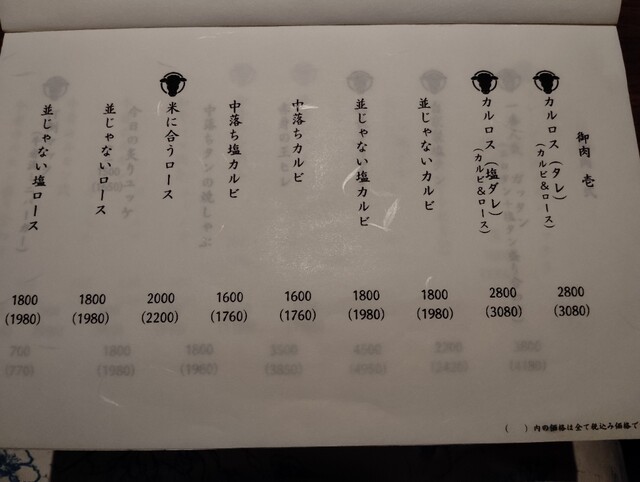 御肉 壱
カルロス(タレ)
(カルビ&ロース)
2800
(3080)
カルロス(塩ダレ)
(カルビ&ロース)
2800
(3080)
並じゃないカルビ
1800
(1980)
並じゃない塩カルビ
1800
(1980)
中落ちカルビ
1600
(1760)
中落ち塩カルビ
1600
(1760)
米に合うロース
2000
(2200)
並じゃないロース
1800
(1980)
並じゃない塩ロース
1800
(1980)
( )内の価格は全て税込み価格で